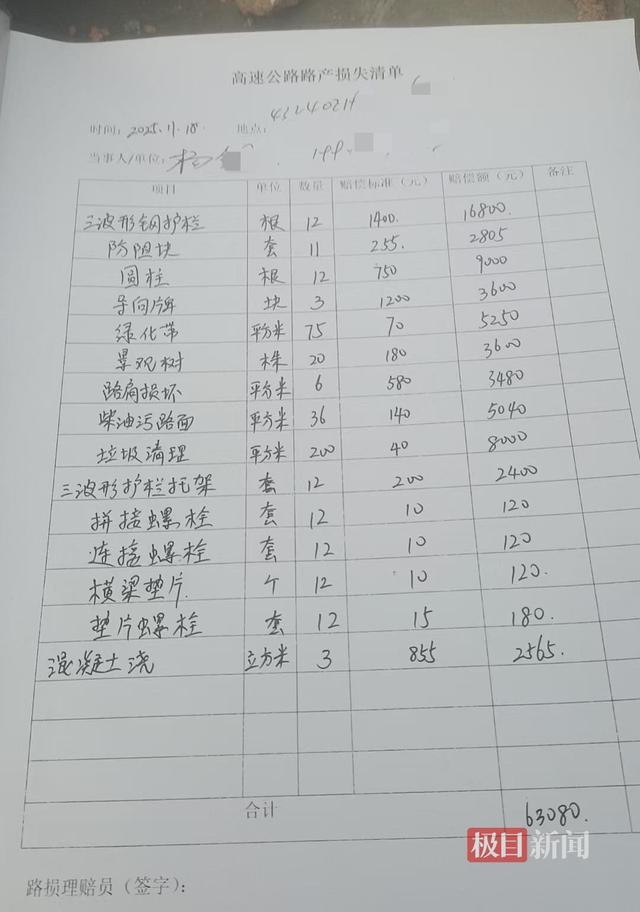 高速公路路产损失清单
时间: 2025.11.18 地点: 4324021
当事人/单位: 杨
项目 单位 数量 赔偿标准(元) 赔偿额(元) 备注
三波形钢护栏 根 12 1400. 16800.
防阻块 套 11 255. 2805
圆柱 根 12 750 9000
导向牌 块 3 1200 3600
绿化带 平方米 75 70 5250
景观树 株 20 180 3600
路肩损坏 平方米 6 580 3480
柴油污路面 平方米 36 140 5040
垃圾清理 平方米 200 40 8000
三波形护栏托架 套 12 200 2400
拼接螺栓 套 12 10 120
连接螺栓 套 12 10 120
横梁垫片 个 12 10 120.
垫片螺栓 套 12 15 180.
混凝土浇 立方米 3 855 2565.
合计 63080.
极目新闻
路损理赔员(签字):